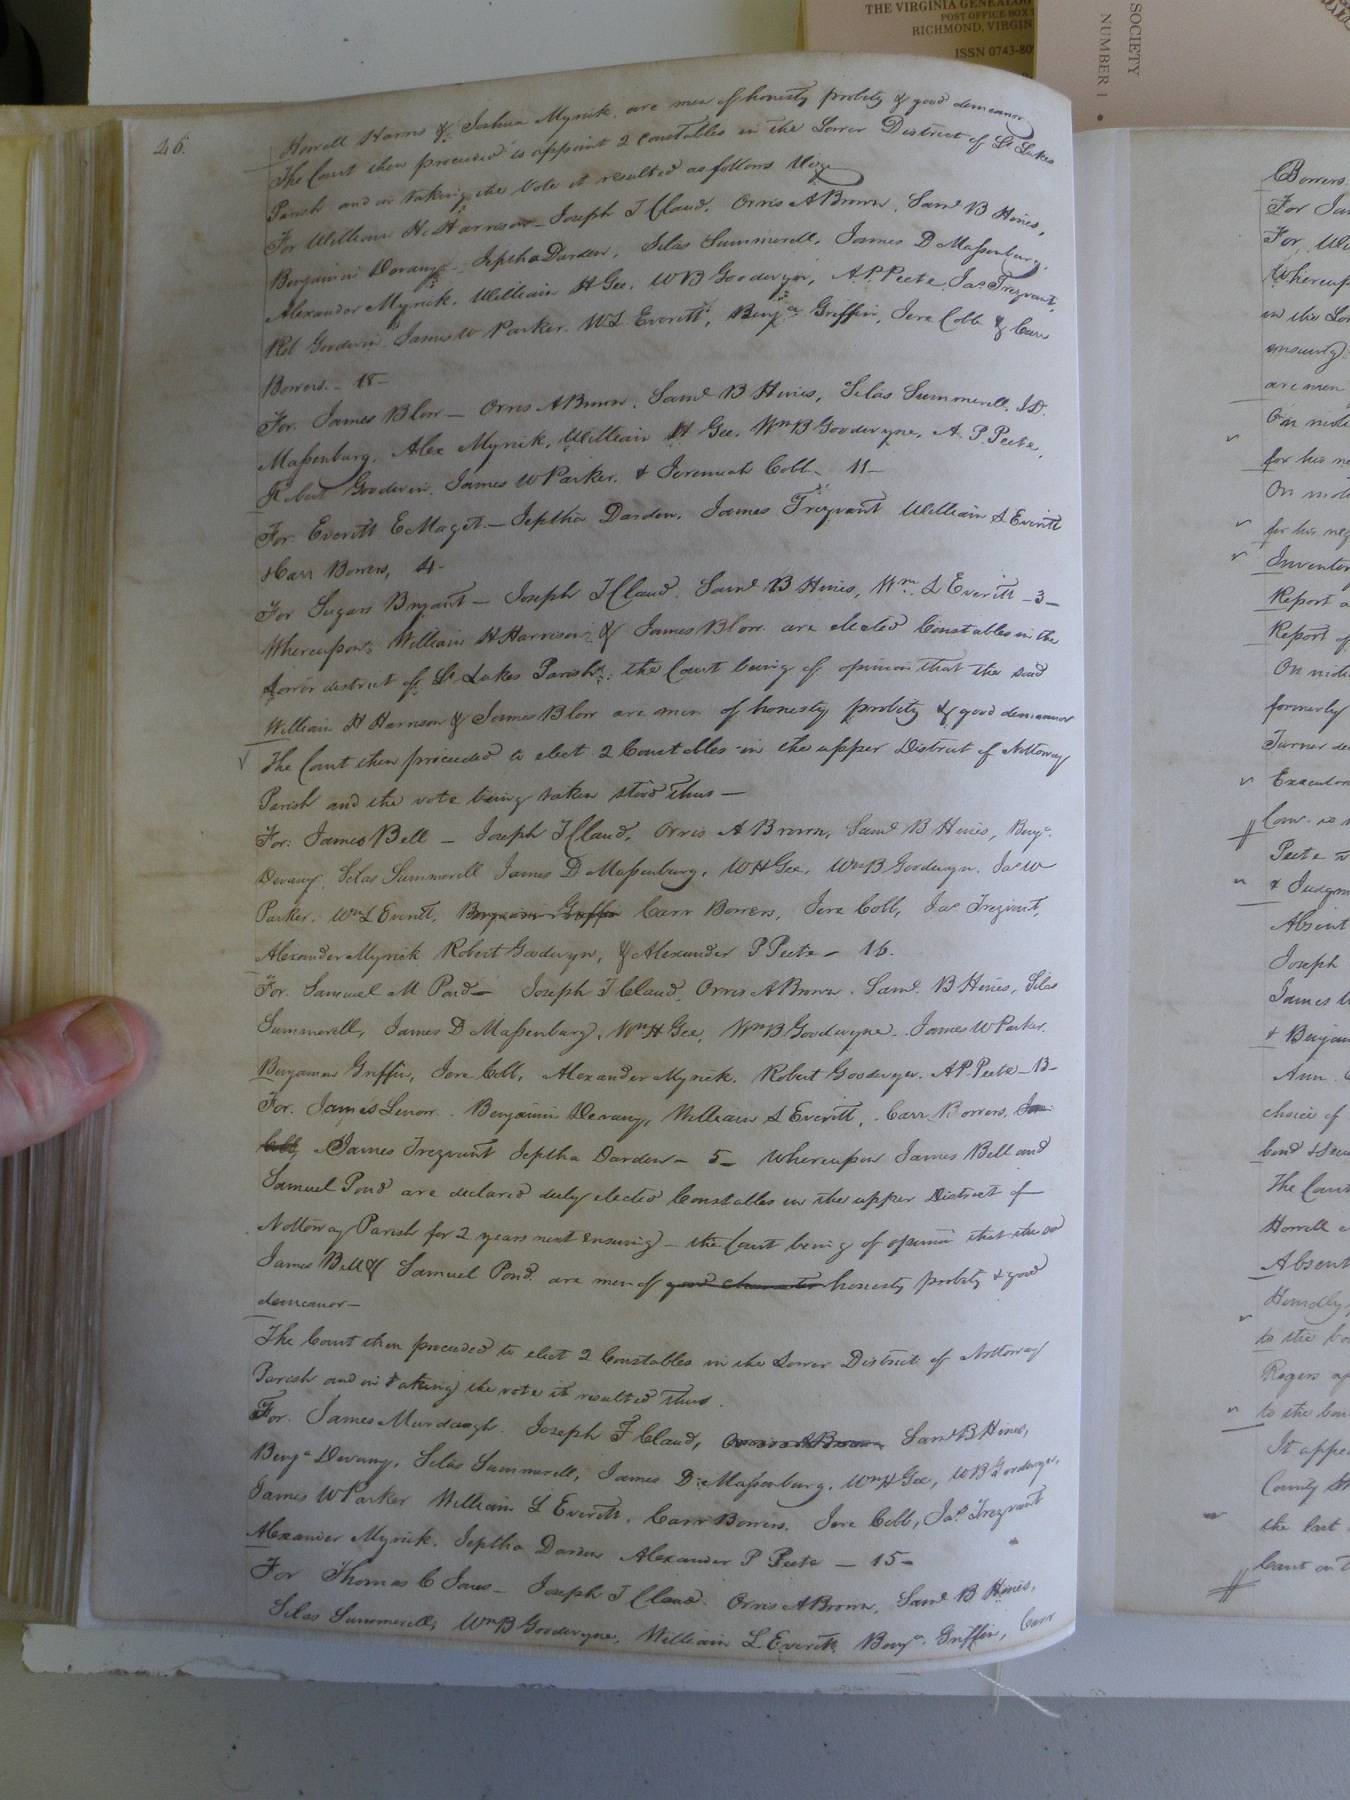 THE VIRGINIA GENEALOG
POST OFFICE BOX
RICHMOND, VIRGIN
ISSN 0743-80
SOCIETY
NUMBER 1
46.
Howell Harris & Joshua Myrick are men of honesty probity & good demeanor
The Court then proceeded to appoint 2 Constables in the Lower District of St Lukes
Parish and on taking the Vote it resulted as follows Viz
For William H. Harrison – Joseph T Claud, Orris A Brown, Saml B Hines,
Benjamin Devany, Jeptha Darden, Silas Summerell, James D Massenburg,
Alexander Myrick, William H Gee, W B Goodwyn, A. P. Peete, Jas Trezvant,
Rob Goodwin, James W Parker, W L Everitt, Benja Griffin, Jere Cobb & Carr
Bowers – 18 –
For James Blow – Orris A Brown, Saml B Hines, Silas Summerell, J D.
Massenburg, Alex Myrick, William H Gee, Wm B Goodwyne, A. P. Peete,
Robert Goodwin, James W Parker, & Jeremiah Cobb – 11 –
For Everitt E Maget – Jeptha Darden, James Trezvant William L Everitt
& Carr Bowers, 4 –
For Sugars Bryant – Joseph T Claud, Saml B Hines, Wm L Everitt – 3 –
Whereupon William H Harrison & James Blow are elected Constables in the
Lower district of St Lukes Parish: the Court being of opinion that the said
William H Harrison & James Blow are men of honesty probity & good demeanor
The Court then proceeded to elect 2 Constables in the upper District of Nottoway
Parish and the vote being taken stood thus –
For: James Bell – Joseph T Claud, Orris A Brown, Saml B Hines, Benja.
Devany, Silas Summerell James D Massenburg, W H Gee, Wm B Goodwyn. Jas W
Parker, Wm L Everitt, Benjamin Griffin Carr Bowers, Jere Cobb, Jas Trezvant,
Alexander Myrick Robert Goodwyn, & Alexander P Peete – 16.
For. Samuel M Pond – Joseph T Claud, Orris A Brown. Saml. B Hines, Silas
Summerell, James D Massenburg, Wm H Gee, Wm B Goodwyne. James W Parker.
Benjamin Griffin, Jere Cobb, Alexander Myrick. Robert Goodwyn. A P Peete – 13 –
For. James Lenow. Benjamin Devany, William L Everitt, Carr Bowers, Jere
Cobb, James Trezvant Jeptha Darden – 5 – Whereupon James Bell and
Samuel Pond are declared duly elected Constables in the upper District of
Nottoway Parish for 2 years next ensuing – the Court being of opinion that the sd
James Bell & Samuel Pond are men of good character honesty probity & good
demeanor –
The Court then proceeded to elect 2 Constables in the Lower District of Nottoway
Parish and on taking the vote it resulted thus.
For. James Murdaugh. Joseph T Claud, Orris A Brown Saml B Hines,
Benja Devany, Silas Summerell, James D. Massenburg, Wm H Gee, W B Goodwyn,
James W Parker William L Everitt, Carr Bowers. Jere Cobb, Jas. Trezvant
Alexander Myrick. Jeptha Darden Alexander P Peete – 15 –
For Thomas C Jones – Joseph T Claud. Orris A Brown, Saml B Hines,
Silas Summerell, Wm B Goodwyne, William L Everitt Benja. Griffin, Carr
Bowers.
For Jam
For Wil
Whereup
in the Lo
ensuing
are men
On moti
for his ne
On moti
for his neg
Inventor
Report a
Report of
On moti
formerly
Turner de
Executor
Law. is
Peete
& Judgm
Absent
Joseph
James W
& Benjam
Ann.
choice of
bond & Secu
The Court
Howell
Absent
to the
Rogers
to the bou
It appe
County
the last
Court on